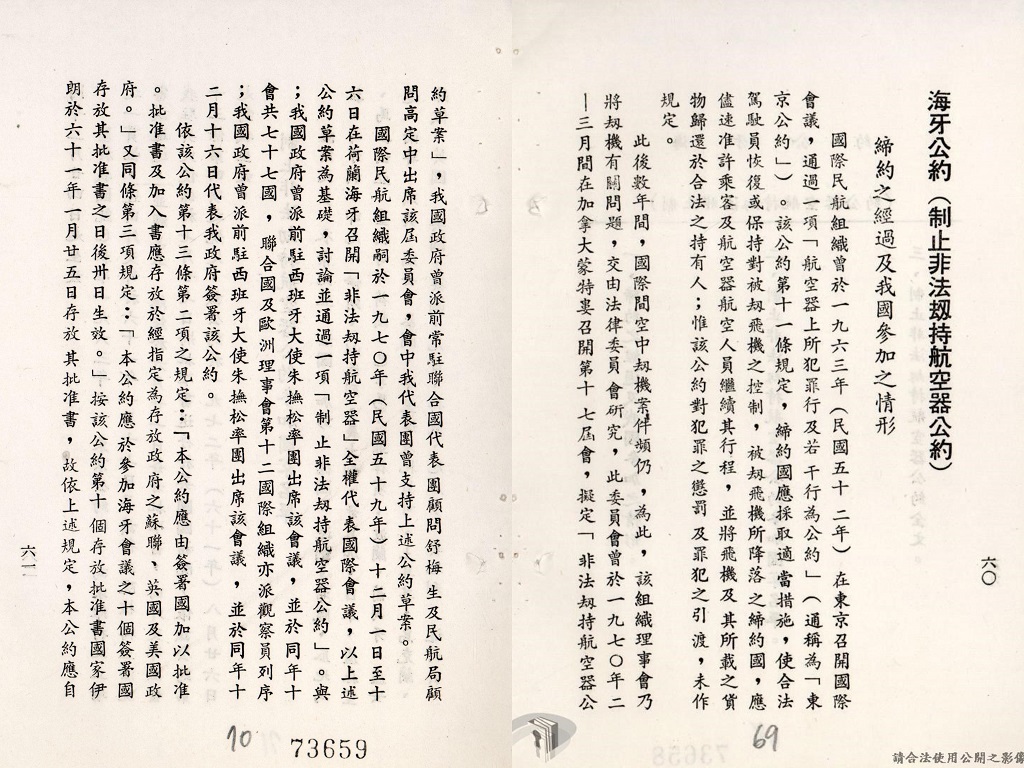 海牙公約（制止非法刼持航空器公約）
締約之經過及我國參加之情形
國際民航組織曾於一九六三年（民國五十二年）在東京召開國際
會議，通過一項「航空器上所犯罪行及若干行為公約」（通稱為「東
京公約」）。該公約第十一條規定，締約國應採取適當措施，使合法
駕駛員恢復或保持對被刼飛機之控制，被刼飛機所降落之締約國，應
儘速准許乘客及航空器航空人員繼續其行程，並將飛機及其所載之貨
物歸還於合法之持有人；惟該公約對犯罪之懲罰及罪犯之引渡，未作
規定。
此後數年間，國際間空中刼機案件頻仍，為此，該組織理事會乃
將刼機有關問題，交由法律委員會研究，此委員會曾於一九七〇年二
—三月間在加拿大蒙特婁召開第十七屆會，擬定「非法刼持航空器公
六〇
69
約草案」，我國政府曾派前常駐聯合國代表團顧問舒梅生及民航局顧
問高定中出席該屆委員會，會中我代表團曾支持上述公約草案。
國際民航組織嗣於一九七〇年（民國五十九年）十二月一日至十
六日在荷蘭海牙召開「非法刼持航空器」全權代表國際會議，以上述
公約草案為基礎，討論並通過一項「制止非法刼持航空器公約」。與
；我國政府曾派前駐西班牙大使朱撫松率團出席該會議，並於同年十
會共七十七國，聯合國及歐洲理事會第十二國際組織亦派觀察員列席
；我國政府曾派前駐西班牙大使朱撫松率團出席該會議，並於同年十
二月十六日代表我政府簽署該公約。
依該公約第十三條第二項之規定：「本公約應由簽署國加以批准
。批准書及加入書應存放於經指定為存放政府之蘇聯、英國及美國政
府。」又同條第三項規定：「本公約應於參加海牙會議之十個簽署國
存放其批准書之日後卅日生效。」按該公約第十個存放批准書國家伊
朗於六十一年一月廿五日存放其批准書，故依上述規定，本公約應自
六一
70
73659
請合法使用公開之影像